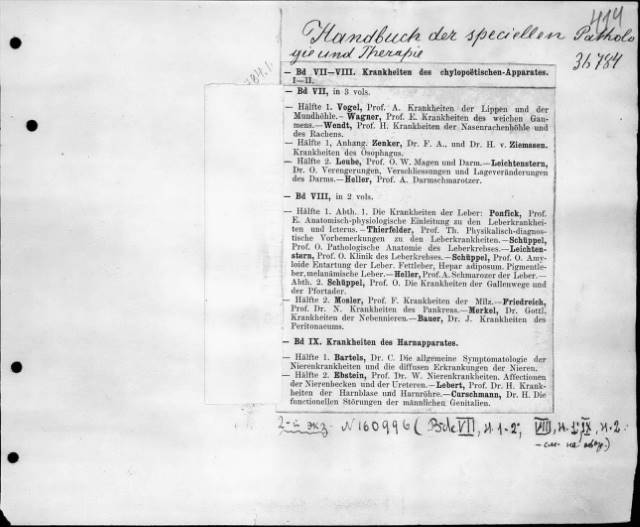 414
Handbuch der speciellen Patholo
gie und Therapie
36784
— Bd VII—VIII. Krankheiten des chylopoëtischen-Apparates.
I—II.
— Bd VII, in 3 vols.
— Hälfte 1. Vogel, Prof. A. Krankheiten der Lippen und der
Mundhöhle.— Wagner, Prof. E. Krankheiten des weichen Gau-
mens.—Wendt, Prof. H. Krankheiten der Nasenrachenhöhle und
des Rachens.
— Hälfte 1, Anhang. Zenker, Dr. F. A., und Dr. H. v. Ziemssen.
Krankheiten des Ösophagus.
— Hälfte 2. Leube, Prof. O. W. Magen und Darm.—Leichtenstern,
Dr. O. Verengerungen, Verschliessungen und Lageveränderungen
des Darms.—Heller, Prof. A. Darmschmarotzer.
— Bd VIII, in 2 vols.
— Hälfte 1. Abth. 1. Die Krankheiten der Leber: Ponfick, Prof.
E. Anatomisch-physiologische Einleitung zu den Leberkrankhei-
ten und Icterus.—Thierfelder, Prof. Th. Physikalisch-diagnos-
tische Vorbemerkungen zu den Leberkrankheiten.—Schüppel,
Prof. O. Pathologische Anatomie des Leberkrebses.—Leichten-
stern, Prof. O. Klinik des Leberkrebses.—Schüppel, Prof. O. Amy-
loide Entartung der Leber. Fettleber, Hepar adiposum. Pigmentle-
ber, melanämische Leber.—Heller, Prof. A. Schmarozer der Leber.—
Abth. 2. Schüppel, Prof. O. Die Krankheiten der Gallenwege und
der Pfortader.
— Hälfte 2. Mosler, Prof. F. Krankheiten der Milz.—Friedreich,
Prof. Dr. N. Krankheiten des Pankreas.—Merkel, Dr. Gottl.
Krankheiten der Nebennieren.—Bauer, Dr. J. Krankheiten des
Peritonaeums.
— Bd IX. Krankheiten des Harnapparates.
— Hälfte 1. Bartels, Dr. C. Die allgemeine Symptomatologie der
Nierenkrankheiten und die diffusen Erkrankungen der Nieren.
— Hälfte 2. Ebstein, Prof. Dr. W. Nierenkrankheiten. Affectionen
der Nierenbecken und der Ureteren.—Lebert, Prof. Dr. H. Krank-
heiten der Harnblase und Harnröhre.—Curschmann, Dr. H. Die
functionellen Störungen der männlichen Genitalien.
2-й экз. N 160996 (Bde VII, H. 1-2,